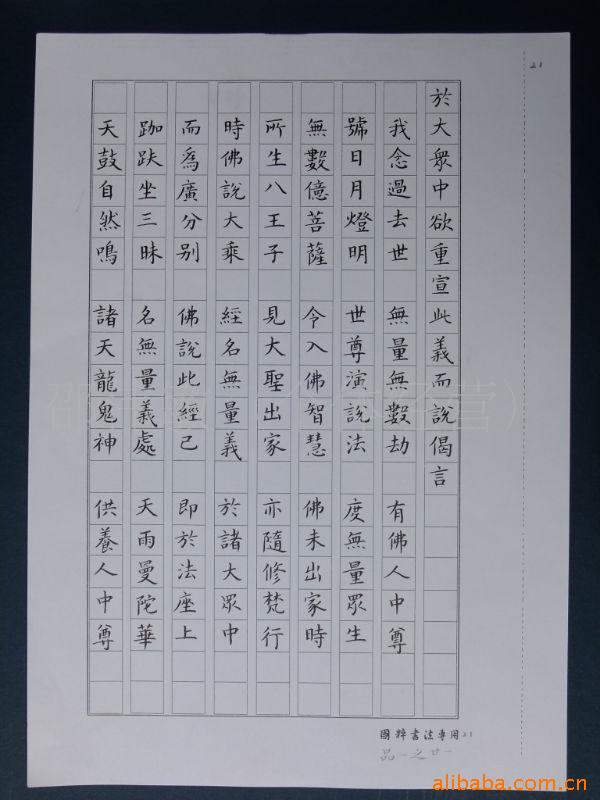 21
於大眾中欲重宣此義而說偈言
我念過去世 無量無數劫 有佛人中尊
號日月燈明 世尊演說法 度無量眾生
無數億菩薩 令入佛智慧 佛未出家時
所生八王子 見大聖出家 亦隨修梵行
時佛說大乘 經名無量義 於諸大眾中
而為廣分別 佛說此經已 即於法座上
跏趺坐三昧 名無量義處 天雨曼陀華
天鼓自然鳴 諸天龍鬼神 供養人中尊
國粹書法專用21
品一之廿一
alibaba.com.cn